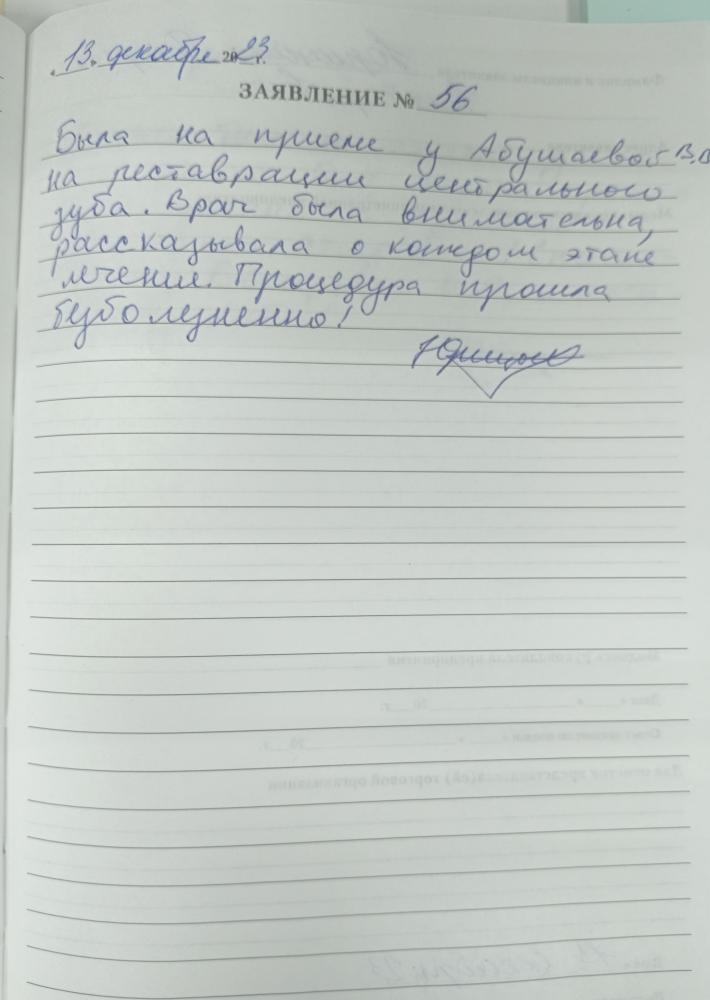 «13» декабря 2023 г.
ЗАЯВЛЕНИЕ № 56
Была на приеме у Абушаевой В.В
на реставрации центрального
зуба. Врач была внимательна,
рассказывала о каждом этапе
лечения. Процедура прошла
безболезненно!